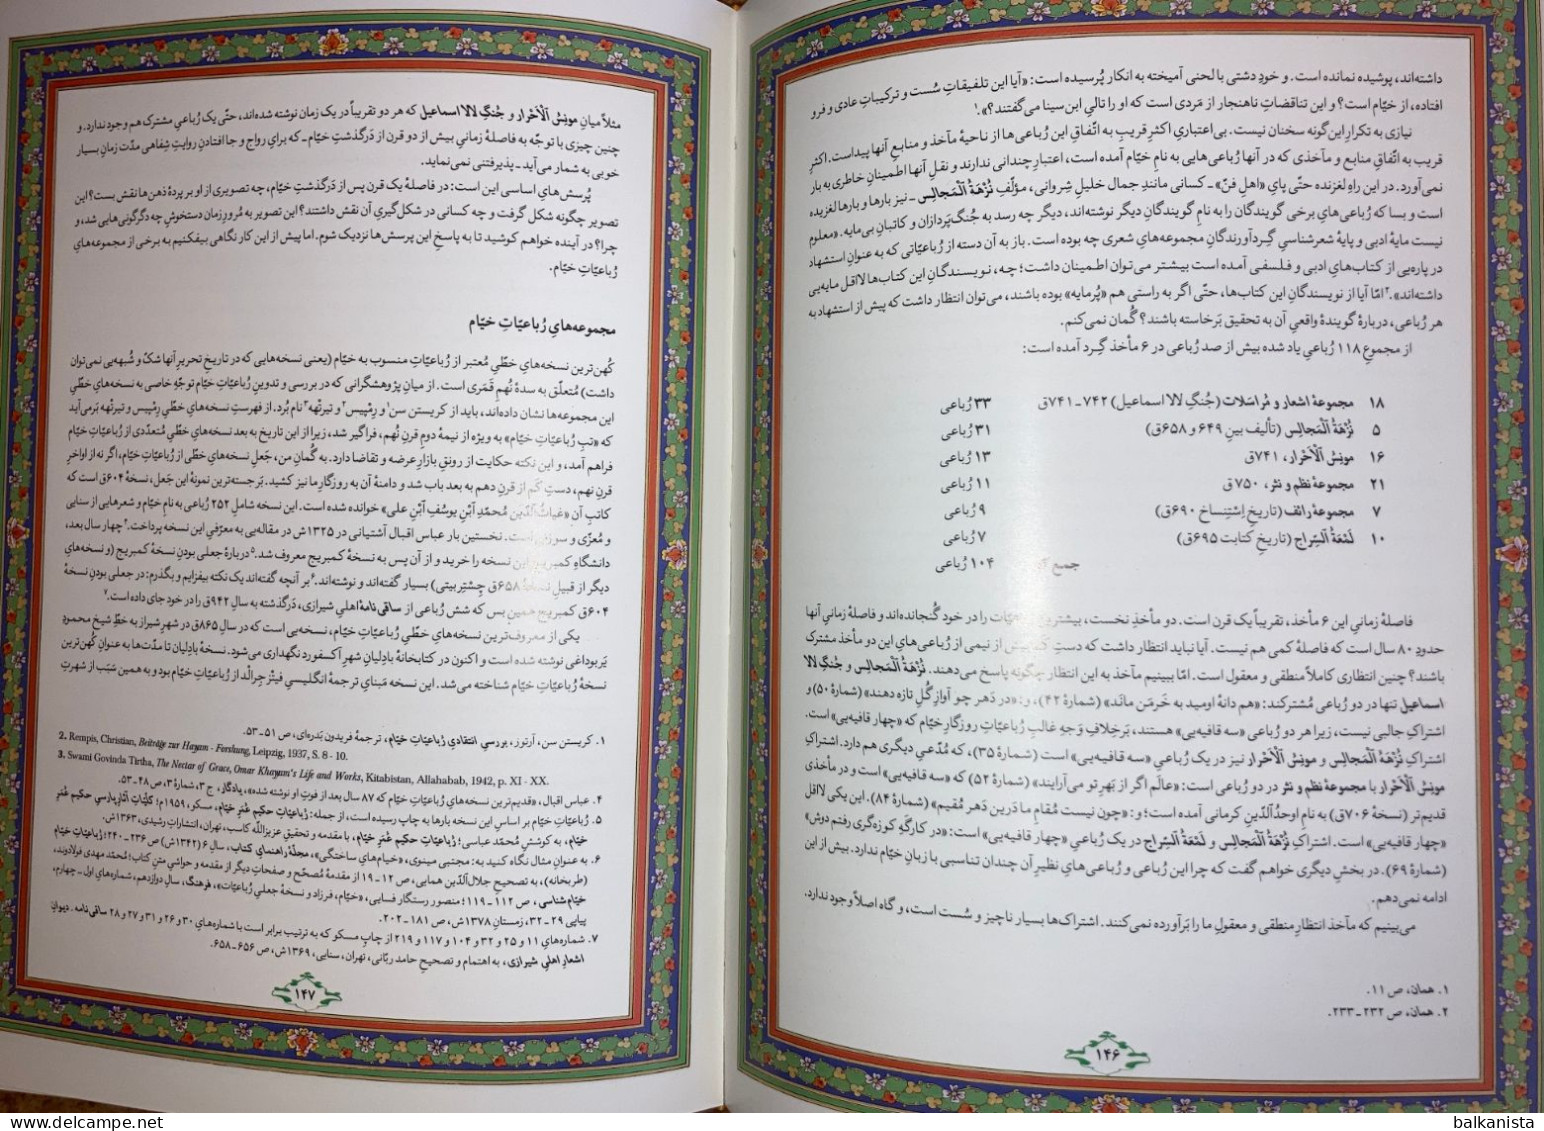 داشته‌اند، پوشیده نمانده است. و خودِ دشتی با لحنی آمیخته به انکار پُرسیده است: «آیا این تلفیقاتِ سُست و ترکیباتِ عادی و فرو
افتاده، از خیّام است؟ و این تناقضاتِ ناهنجار از مَردی است که او را تالیِ ابن‌سینا می‌گفتند؟».¹
نیازی به تکرارِ این‌گونه سخنان نیست. بی‌اعتباریِ اکثرِ قریب به اتّفاقِ این رُباعی‌ها از ناحیهٔ مآخذ و منابعِ آنها پیداست. اکثرِ
قریب به اتّفاقِ منابع و مآخذی که در آنها رُباعی‌هایی به نامِ خیّام آمده است، اعتبارِ چندانی ندارند و نقلِ آنها اطمینانِ خاطری به بار
نمی‌آورد. در این راهِ لغزنده حتّی پایِ «اهلِ فنّ» ـ کسانی مانندِ جمال خلیلِ شروانی، مؤلّفِ نُزْهَةُ الْمَجالِس ـ نیز بارها و بارها لغزیده
است و بسا که رُباعی‌هایِ برخی گویندگان را به نامِ گویندگانِ دیگر نوشته‌اند، دیگر چه رسد به جُنگ‌پَردازان و کاتبانِ بی‌مایه. «معلوم
نیست مایهٔ ادبی و پایهٔ شعرشناسیِ گِردآورندگانِ مجموعه‌هایِ شعری چه بوده است. باز به آن دسته از رُباعیّاتی که به عنوانِ استشهاد
در پاره‌یی از کتاب‌هایِ ادبی و فلسفی آمده است بیشتر می‌توان اطمینان داشت؛ چه، نویسندگانِ این کتاب‌ها لااقل مایه‌یی
داشته‌اند».² امّا آیا از نویسندگانِ این کتاب‌ها، حتّی اگر به راستی هم «پُرمایه» بوده باشند، می‌توان انتظار داشت که پیش از استشهاد به
هر رُباعی، دربارهٔ گویندهٔ واقعیِ آن به تحقیق بَرخاسته باشند؟ گُمان نمی‌کنم.
از مجموعِ ۱۱۸ رُباعیِ یاد شده بیش از صد رُباعی در ۶ مأخذ گِرد آمده است:
۱۸ مجموعهٔ اشعار و مُراسَلات (جُنگِ لالا اسماعیل) ۷۴۲ـ۷۴۱ق ۳۳ رُباعی
۵ نُزْهَةُ الْمَجالِس (تألیف بینِ ۶۴۹ و ۶۵۸ق) ۳۱ رُباعی
۱۶ مونِسُ الْأَحْرار، ۷۴۱ق ۱۳ رُباعی
۲۱ مجموعهٔ نظم و نثر، ۷۵۰ق ۱۱ رُباعی
۷ مجموعهٔ رائف (تاریخِ اِستِنساخ ۶۹۰ق) ۹ رُباعی
۱۰ لَمْعَةُ السِّراج (تاریخِ کتابت ۶۹۵ق) ۷ رُباعی
جمع ۱۰۴ رُباعی
فاصلهٔ زمانیِ این ۶ مأخذ، تقریباً یک قرن است. دو مأخذِ نخست، بیشترین رُباعیّات را در خود گُنجانده‌اند و فاصلهٔ زمانیِ آنها
حدودِ ۸۰ سال است که فاصلهٔ کمی هم نیست. آیا نباید انتظار داشت که دستِ کَم بیش از نیمی از رُباعی‌هایِ این دو مأخذ مشترک
باشند؟ چنین انتظاری کاملاً منطقی و معقول است. امّا ببینیم مآخذ به این انتظار چگونه پاسخ می‌دهند. نُزْهَةُ الْمَجالِس و جُنگِ لالا
اسماعیل تنها در دو رُباعی مُشترکند: «هم دانهٔ اومید به خَرمَن مانَد» (شمارهٔ ۴۲)، و: «در دَهر چو آوازِ گُلِ تازه دهند» (شمارهٔ ۵۰) و
اشتراکِ جالبی نیست، زیرا هر دو رُباعی «سه قافیه‌یی» هستند، بَرخِلافِ وَجهِ غالبِ رُباعیّاتِ روزگارِ خیّام که «چهار قافیه‌یی» است.
اشتراکِ نُزْهَةُ الْمَجالِس و مونِسُ الْأَحْرار نیز در یک رُباعیِ «سه قافیه‌یی» است (شمارهٔ ۳۵)، که مُدّعیِ دیگری هم دارد. اشتراکِ
مونِسُ الْأَحْرار با مجموعهٔ نظم و نثر در دو رُباعی است: «عالَم اگر از بَهرِ تو می‌آرایند» (شمارهٔ ۵۲) که «سه قافیه‌یی» است و در مأخذی
قدیم‌تر (نسخهٔ ۷۰۶ق) به نامِ اوحدُالدّینِ کرمانی آمده است؛ و: «چون نیست مُقامِ ما دَرین دَهر مُقیم» (شمارهٔ ۸۴). این یکی لااقل
«چهار قافیه‌یی» است. اشتراکِ نُزْهَةُ الْمَجالِس و لَمْعَةُ السِّراج در یک رُباعیِ «چهار قافیه‌یی» است: «در کارگَهِ کوزه‌گری رفتم دوش»
(شمارهٔ ۶۹). در بخشِ دیگری خواهم گفت که چرا این رُباعی و رُباعی‌هایِ نظیرِ آن چندان تناسبی با زبانِ خیّام ندارد. بیش از این
ادامه نمی‌دهم.
می‌بینیم که مآخذ انتظارِ منطقی و معقولِ ما را بَرآورده نمی‌کنند. اشتراک‌ها بسیار ناچیز و سُست است، و گاه اصلاً وجود ندارد.
۱. همان، ص ۱۱.
۲. همان، ص ۲۳۲ـ۲۳۳.
۱۴۶
مثلاً میانِ مونِسُ الْأَحْرار و جُنگِ لالا اسماعیل که هر دو تقریباً در یک زمان نوشته شده‌اند، حتّی یک رُباعیِ مشترک هم وجود ندارد. و
چنین چیزی با توجّه به فاصلهٔ زمانیِ بیش از دو قرن از دَرگذشتِ خیّام ـ که برایِ رواج و جا افتادنِ روایتِ شِفاهی مدّت زمانِ بسیار
خوبی به شمار می‌آید ـ پذیرفتنی نمی‌نماید.
پُرسش‌هایِ اساسی این است: در فاصلهٔ یک قرن پس از دَرگذشتِ خیّام، چه تصویری از او بر پردهٔ ذهن‌ها نقش بست؟ این
تصویر چگونه شکل گرفت و چه کسانی در شکل‌گیریِ آن نقش داشتند؟ این تصویر به مُرورِ زمان دستخوشِ چه دگرگونی‌هایی شد، و
چرا؟ در آینده خواهم کوشید تا به پاسخِ این پرسش‌ها نزدیک شوم. اما پیش از این کار نگاهی بیفکنیم به برخی از مجموعه‌هایِ
رُباعیّاتِ خیّام.
مجموعه‌هایِ رُباعیّاتِ خیّام
کُهن‌ترین نسخه‌هایِ خطّیِ مُعتبر از رُباعیّاتِ منسوب به خیّام (یعنی نسخه‌هایی که در تاریخِ تحریرِ آنها شکّ و شُبهه‌یی نمی‌توان
داشت) مُتعلّق به سدهٔ نُهمِ قَمَری است. از میانِ پژوهشگرانی که در بررسی و تدوینِ رُباعیّاتِ خیّام توجّهِ خاصی به نسخه‌هایِ خطّیِ
این مجموعه‌ها نشان داده‌اند، باید از کریستن سن¹ و رِمْپیس² و تیرتْهه³ نام بُرد. از فهرستِ نسخه‌هایِ خطّیِ رِمْپیس و تیرتْهه بَرمی‌آید
که «تبِ رُباعیّاتِ خیّام» به ویژه از نیمهٔ دومِ قرنِ نُهم، فراگیر شد، زیرا از این تاریخ به بعد نسخه‌هایِ خطّیِ مُتعدّدی از رُباعیّاتِ خیّام
فراهم آمد، و این نکته حکایت از رونقِ بازارِ عرضه و تقاضا دارد. به گُمانِ من، جَعلِ نسخه‌هایِ خطّی از رُباعیّاتِ خیّام، اگر نه از اواخرِ
قرنِ نهم، دستِ کَم از قرنِ دهم به بعد باب شد و دامنهٔ آن به روزگارِ ما نیز کشید. بَرجسته‌ترین نمونهٔ این جَعل، نسخهٔ ۶۰۴ق است که
کاتبِ آن «غیاثُ‌الدّین مُحمّدِ آبْنِ یوسُفِ آبْنِ علی» خوانده شده است. این نسخه شاملِ ۲۵۲ رُباعی به نامِ خیّام و شعرهایی از سنایی
و مُعزّی و سوزنی است. نخستین بار عباس اقبال آشتیانی در ۱۳۲۵ش در مقاله‌یی به معرّفیِ این نسخه پرداخت.⁴ چهار سال بعد،
دانشگاهِ کمبریج این نسخه را خرید و از آن پس به نسخهٔ کمبریج معروف شد.⁵ دربارهٔ جعلی بودنِ نسخهٔ کمبریج (و نسخه‌هایِ
دیگر از قبیلِ نسخهٔ ۶۵۸ق چِستِربیتی) بسیار گفته‌اند و نوشته‌اند.⁶ بر آنچه گفته‌اند یک نکته بیفزایم و بگذرم: در جعلی بودنِ نسخهٔ
۶۰۴ق کمبریج همین بس که شش رُباعی از ساقی نامهٔ اهلیِ شیرازی، دَرگذشته به سالِ ۹۴۲ق را در خود جای داده است.⁷
یکی از معروف‌ترین نسخه‌هایِ خطّیِ رُباعیّاتِ خیّام، نسخه‌یی است که در سالِ ۸۶۵ق در شهرِ شیراز به خطِّ شیخ محمودِ
یَربوداغی نوشته شده است و اکنون در کتابخانهٔ بادلیانِ شهرِ آکسفورد نگهداری می‌شود. نسخهٔ بادلیان تا مدّت‌ها به عنوانِ کُهن‌ترین
نسخهٔ رُباعیّاتِ خیّام شناخته می‌شد. این نسخه مَبنایِ ترجمهٔ انگلیسیِ فیتْز جِرالْد از رُباعیّاتِ خیّام بود و به همین سَبَب از شهرتِ
۱. کریستن سن، آرتور، بررسی انتقادیِ رُباعیّاتِ خیّام، ترجمهٔ فریدون بَدره‌ای، ص ۵۱ـ۵۳.
2. Rempis, Christian, Beiträge zur Hayam - Forshung, Leipzig, 1937, S. 8 - 10.
3. Swami Govinda Tirtha, The Nectar of Grace, Omar Khayam's Life and Works, Kitabistan, Allahabab, 1942, p. XI - XX.
۴. عباس اقبال، «قدیم‌ترین نسخه‌هایِ رُباعیّاتِ خیّام که ۸۷ سال بعد از فوتِ او نوشته شده»، یادگار، ج ۳، شمارهٔ ۳، ص ۴۸ـ۵۳.
۵. رُباعیّاتِ خیّام بر اساسِ این نسخه بارها به چاپ رسیده است، از جمله: رُباعیّاتِ حکیم عُمَرِ خیّام، مسکو، ۱۹۵۹م؛ کلیّاتِ آثارِ پارسیِ حکیم عُمَرِ
خیّام، به کوششِ مُحمّد عباسی؛ رُباعیّاتِ حکیم عُمَرِ خیّام، با مقدمه و تحقیقِ عزیزالله کاسب، تهران، انتشاراتِ رشیدی، ۱۳۶۳ش.
۶. به عنوانِ مثال نگاه کنید به: مجتبی مینوی، «خیام‌هایِ ساختگی»، مجلّهٔ راهنمایِ کتاب، سال ۶ (۱۳۴۲ش) ص ۲۳۶ـ۲۴۰؛ رُباعیّاتِ خیّام
(طربخانه)، به تصحیحِ جلال‌الدّین همایی، ص ۱۲ـ۱۹ از مقدمهٔ مُصحّح و صفحاتِ دیگر از مقدمه و حواشیِ متنِ کتاب؛ مُحمّد مهدی فولادوند،
خیّام‌شناسی، ص ۱۱۲ـ۱۱۹؛ منصور رستگار فسایی، «خیّام، فرزاد و نسخهٔ جعلیِ رُباعیّات»، فرهنگ، سالِ دوازدهم، شماره‌هایِ اول ـ چهارم،
پیاپی ۲۹ـ۳۲، زمستانِ ۱۳۷۸ش، ص ۱۸۱ـ۲۰۲.
۷. شماره‌هایِ ۱۱ و ۲۵ و ۳۲ و ۱۰۴ و ۱۱۷ و ۲۱۹ از چاپِ مسکو که به ترتیب برابر است با شماره‌هایِ ۳۰ و ۲۶ و ۳۱ و ۲۷ و ۲۸ ساقی نامه. دیوانِ
اشعارِ اهلیِ شیرازی، به اهتمام و تصحیحِ حامد ربّانی، تهران، سنایی، ۱۳۶۹ش، ص ۶۵۶ـ۶۵۸.
۱۴۷
www.delcampe.net
balkanista